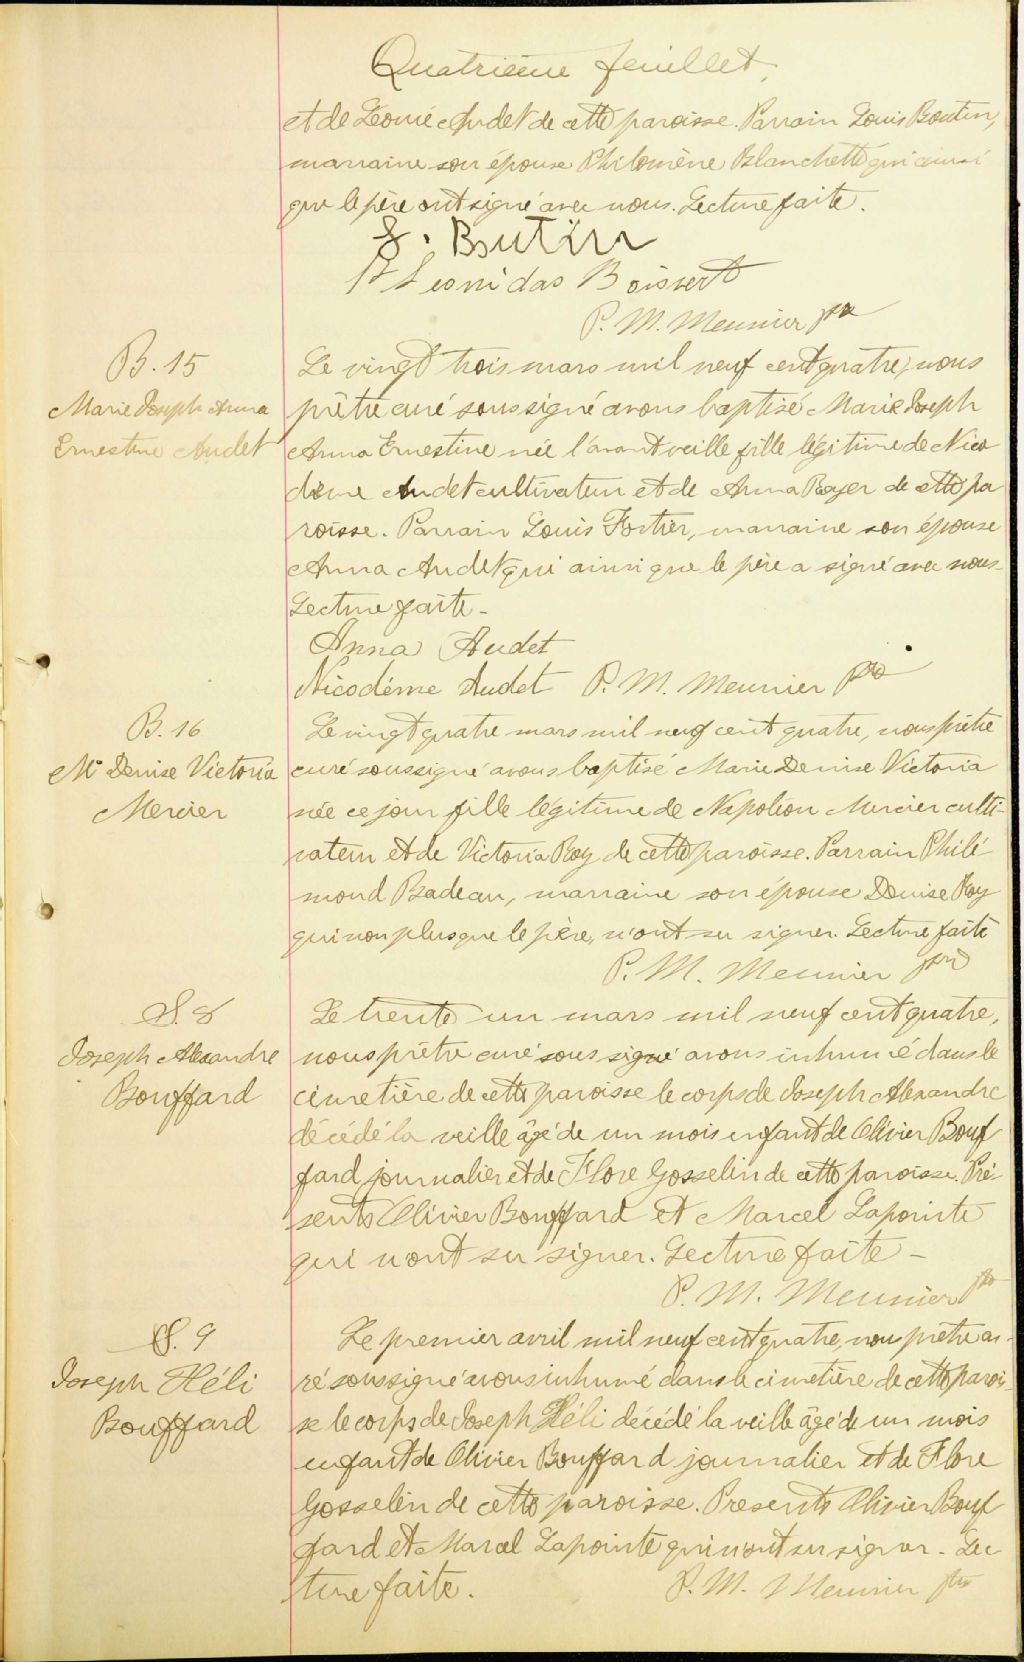 Quatrième feuillet,
et de Léonie Audet de cette paroisse. Parrain Louis Boutin,
marraine son épouse Philomène Blanchette qui ainsi
que le père ont signé avec nous. Lecture faite.
L. Boutin
Leonidas Boisvert
P. M. Meunier ptre
B. 15
Marie Joseph Anna
Ernestine Audet
Le vingt trois mars mil neuf cent quatre, nous
prêtre curé soussigné avons baptisé Marie Joseph
Anna Ernestine née l'avant veille fille légitime de Nico
dème Audet cultivateur et de Anna Royer de cette pa
roisse. Parrain Louis Fortier, marraine son épouse
Anna Audet qui ainsi que le père a signé avec nous-
Lecture faite -
Anna Audet
Nicodéme Audet P. M. Meunier ptre
B. 16
Mie Denise Victoria
Mercier
Le vingt quatre mars mil neuf cent quatre, nous prêtre
curé soussigné avons baptisé Marie Denise Victoria
née ce jour fille légitime de Napoléon Mercier culti-
vateur et de Victoria Roy de cette paroisse. Parrain Philé-
mond Badeau, marraine son épouse Denise Roy
qui non plus que le père, n'ont su signer. Lecture faite
P. M. Meunier ptre
S. 8
Joseph Alexandre
Bouffard
Le trente un mars mil neuf cent quatre,
nous prêtre curé sous signé avons inhumé dans le
cimetière de cette paroisse le corps de Joseph Alexandre
décédé la veille âgé de un mois enfant de Olivier Bouf
fard journalier et de Flore Gosselin de cette paroisse. Pré-
sents Olivier Bouffard et Marcel Lapointe
qui n'ont su signer. Lecture faite -
P. M. Meunier ptre
S. 9
Joseph Héli
Bouffard
Le premier avril mil neuf cent quatre, nous prêtre cu-
ré soussigné avons inhumé dans le cimetière de cette parois-
se le corps de Joseph Héli décédé la veille âgé de un mois
enfant de Olivier Bouffard journalier et de Flore
Gosselin de cette paroisse. Presents Olivier Bouf
fard et Marcel Lapointe qui n'ont su signer. Lec
ture faite. P. M. Meunier ptre